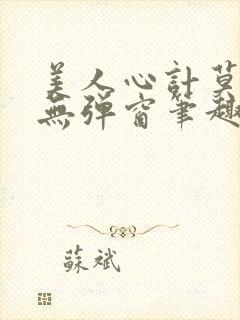 美人心計莫
無彈窗筆趣
蘇斌